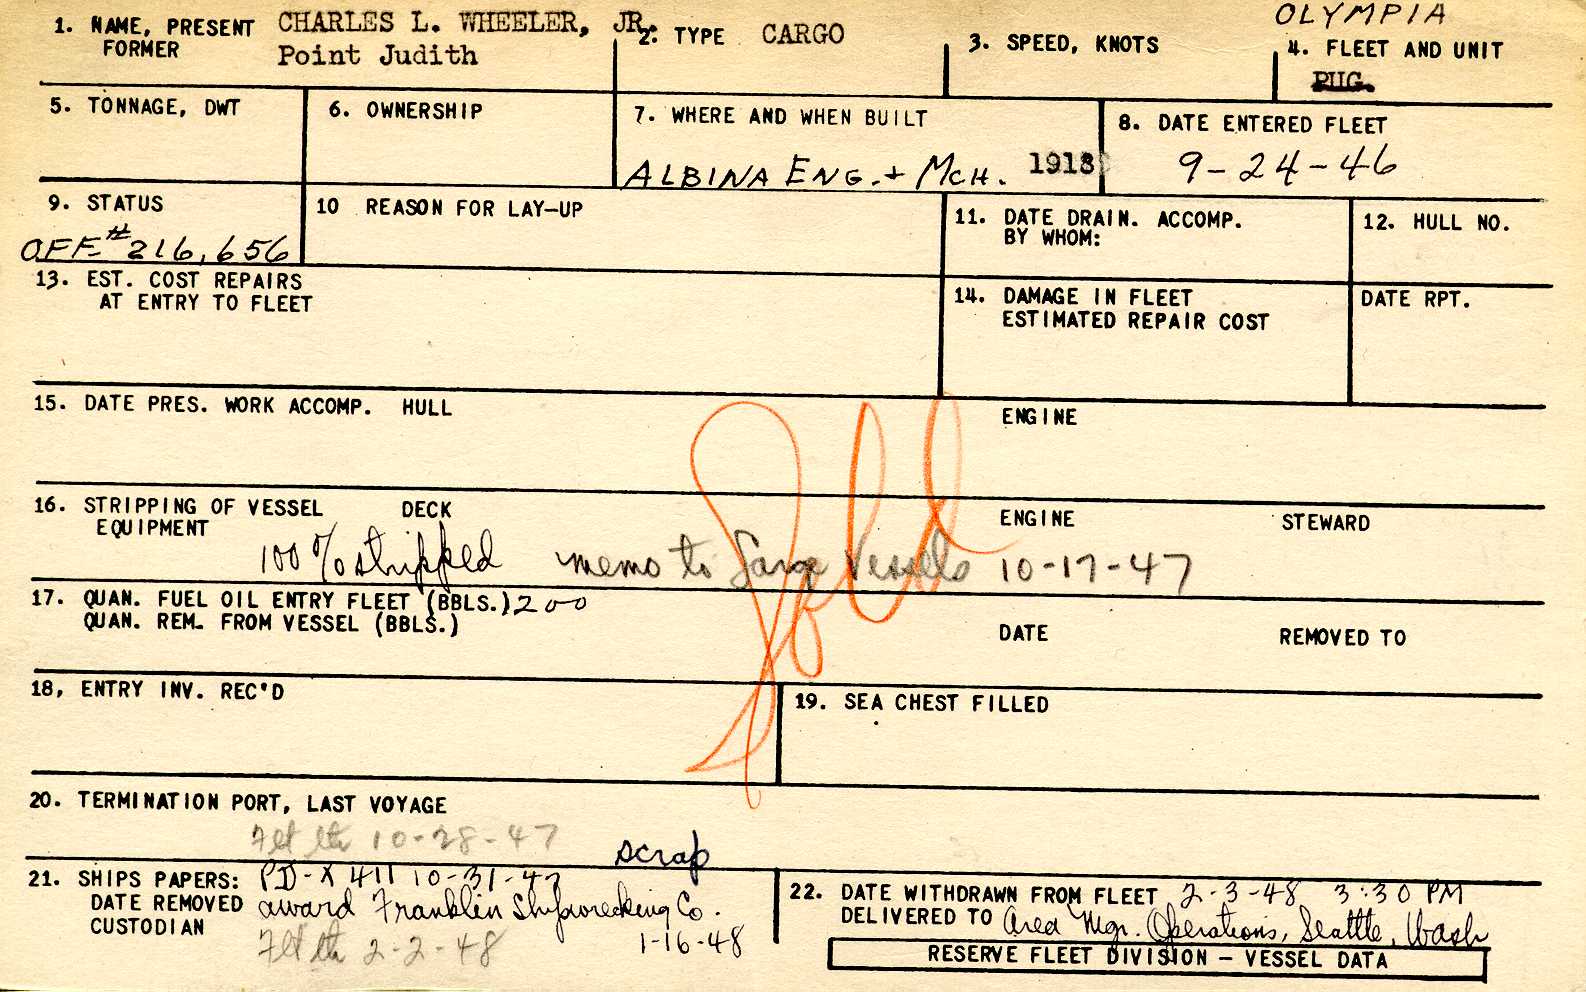 OLYMPIA
1. NAME, PRESENT CHARLES L. WHEELER, JR. 2. TYPE CARGO 3. SPEED, KNOTS 4. FLEET AND UNIT
FORMER Point Judith PUG.
5. TONNAGE, DWT 6. OWNERSHIP 7. WHERE AND WHEN BUILT 8. DATE ENTERED FLEET
ALBINA ENG. + MCH. 1918 9-24-46
9. STATUS 10 REASON FOR LAY-UP 11. DATE DRAIN. ACCOMP. 12. HULL NO.
BY WHOM:
OFF.# 216,656
13. EST. COST REPAIRS 14. DAMAGE IN FLEET DATE RPT.
AT ENTRY TO FLEET ESTIMATED REPAIR COST
15. DATE PRES. WORK ACCOMP. HULL ENGINE
Sold
16. STRIPPING OF VESSEL DECK ENGINE STEWARD
EQUIPMENT
100% stripped memo to Large Vessels 10-17-47
17. QUAN. FUEL OIL ENTRY FLEET (BBLS.) 200
QUAN. REM. FROM VESSEL (BBLS.) DATE REMOVED TO
18, ENTRY INV. REC'D 19. SEA CHEST FILLED
20. TERMINATION PORT, LAST VOYAGE
Flt ltr 10-28-47 scrap
21. SHIPS PAPERS: PD-X 411 10-31-47 22. DATE WITHDRAWN FROM FLEET 2-3-48 3:30 PM
DATE REMOVED award Franklin Shipwrecking Co. DELIVERED TO Area Mgr. Operations, Seattle, Wash
CUSTODIAN 1-16-48
Flt ltr 2-2-48
RESERVE FLEET DIVISION - VESSEL DATA